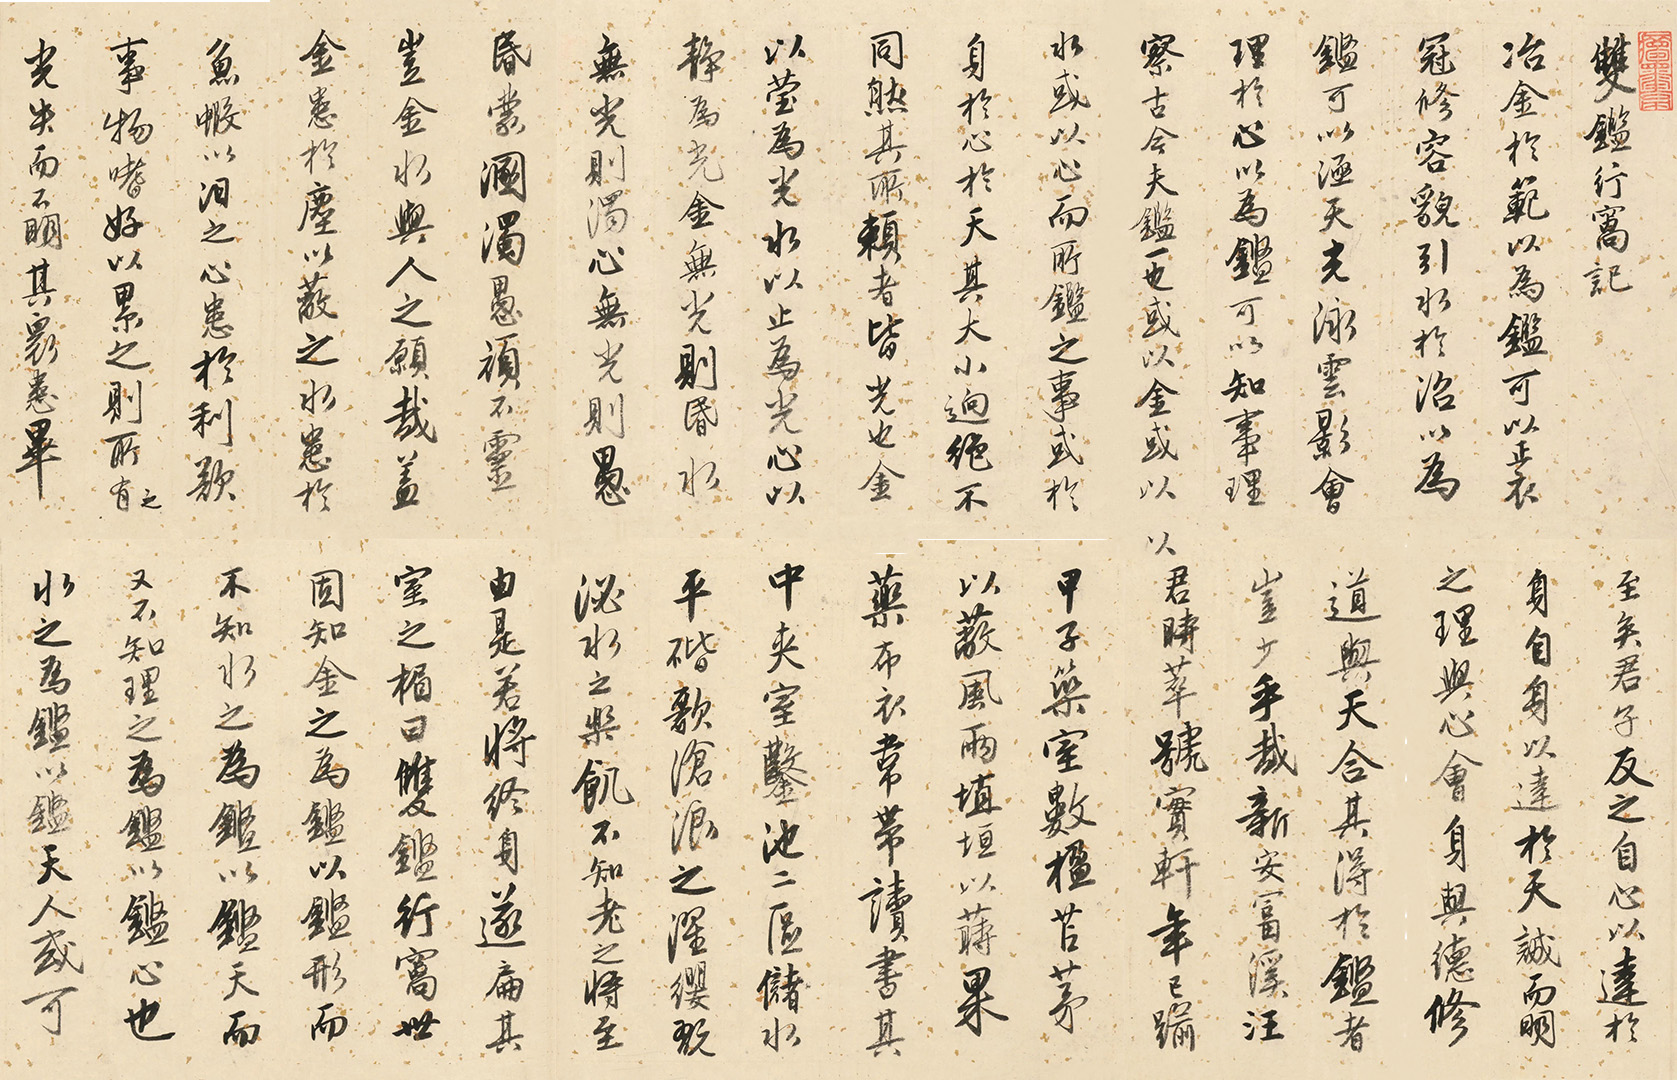 雙鑑行窩記
冶金於範以為鑑可以正衣
冠修容貌引水於沼以為
鑑可以涵天光泳雲影會
理於心以為鑑可以知事理
察古今夫鑑一也或以金或以
水或以心而所鑑之事或於
身於心於天其大小逈絶不
同然其所賴者皆光也金
以瑩為光水以止為光心以
靜為光金無光則昏水
無光則濁心無光則愚
昏蒙溷濁愚頑不靈
豈金水與人之願哉盖
金患於塵以蔽之水患於
魚蝦以汩之心患於利欲
事物嗜好以累之則所有之
光失而不明其衆患畢
至矣君子反之自心以達於
身自身以達於天誠而明
之理與心會身與德修
道與天合其得於鑑者
豈少乎哉新安冨溪汪
以君時萃號實軒年已踰
甲子築室數楹苫茅
以蔽風雨埴垣以蒔果
藥布衣常帶讀書其
中夾室鑿池二區儲水
平碏歌滄浪之濯纓翫
泌水之樂飢不知老之將至
由是若將終身遂扁其
室之楣曰雙鑑行窩世
固知金之為鑑以鑑形而
不知水之為鑑以鑑天而
又不知理之為鑑以鑑心也
水之為鑑以鑑天人或可